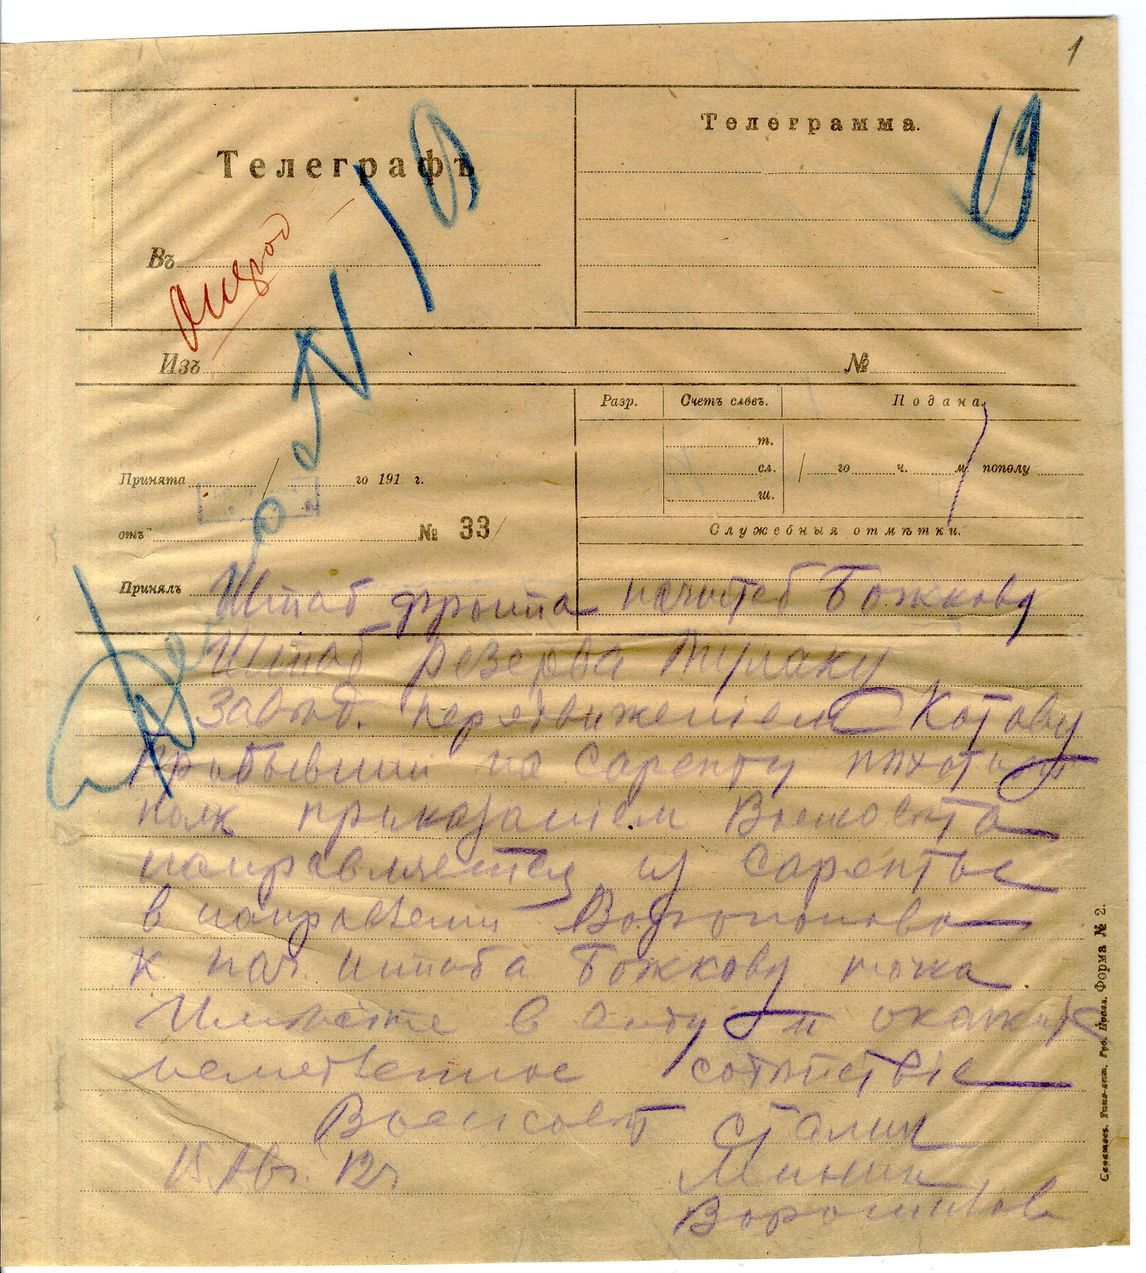 1
Телеграфъ
Телеграмма.
Въ
Изъ
№
Разр. Счетъ словъ. Подана
т.
Принята го 191 г.
сл. го ч. м. пополу
ш.
отъ № 33/
Служебныя отмѣтки.
Принялъ
Штаб фронта наштаб Божкову
Штаб резерва Тулаку
Завед. передвижением Котову
Прибывший на Сарепту пехотный
полк приказанием Военсовета
направляется из Сарепты
в направлении Воропоново
к нач. штаба Божкову точка
Имейте в виду и окажите
немедленное содействие
Военсовет Сталин
15 Авг. 12 ч Минин
Ворошилов
Форма № 2.